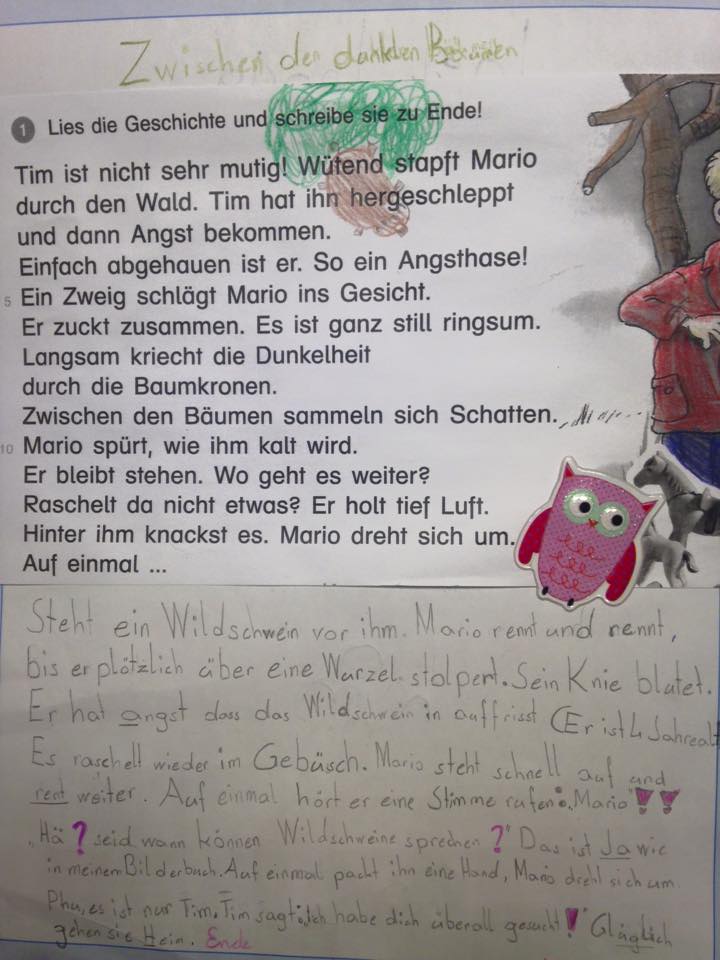 Zwischen den dunklen Bäumen
1 Lies die Geschichte und schreibe sie zu Ende!
Tim ist nicht sehr mutig! Wütend stapft Mario
durch den Wald. Tim hat ihn hergeschleppt
und dann Angst bekommen.
Einfach abgehauen ist er. So ein Angsthase!
5 Ein Zweig schlägt Mario ins Gesicht.
Er zuckt zusammen. Es ist ganz still ringsum.
Langsam kriecht die Dunkelheit
durch die Baumkronen.
Zwischen den Bäumen sammeln sich Schatten.
10 Mario spürt, wie ihm kalt wird.
Er bleibt stehen. Wo geht es weiter?
Raschelt da nicht etwas? Er holt tief Luft.
Hinter ihm knackst es. Mario dreht sich um.
Auf einmal ...
Steht ein Wildschwein vor ihm. Mario rennt und rennt,
bis er plötzlich über eine Wurzel stolpert. Sein Knie blutet.
Er hat angst dass das Wildschwein in auffrisst (Er ist 4 Jahre alt
Es raschelt wieder im Gebüsch. Mario steht schnell auf und
rent weiter. Auf einmal hört er eine Stimme rufen: „Mario"!!
„Hä? seid wann können Wildschweine sprechen?" Das ist Ja wie
in meinem Bilderbuch. Auf einmal packt ihn eine Hand, Mario dreht sich um.
Phu, es ist nur Tim. Tim sagt: „Ich habe dich überall gesucht!" Glüglich
gehen sie Heim. Ende